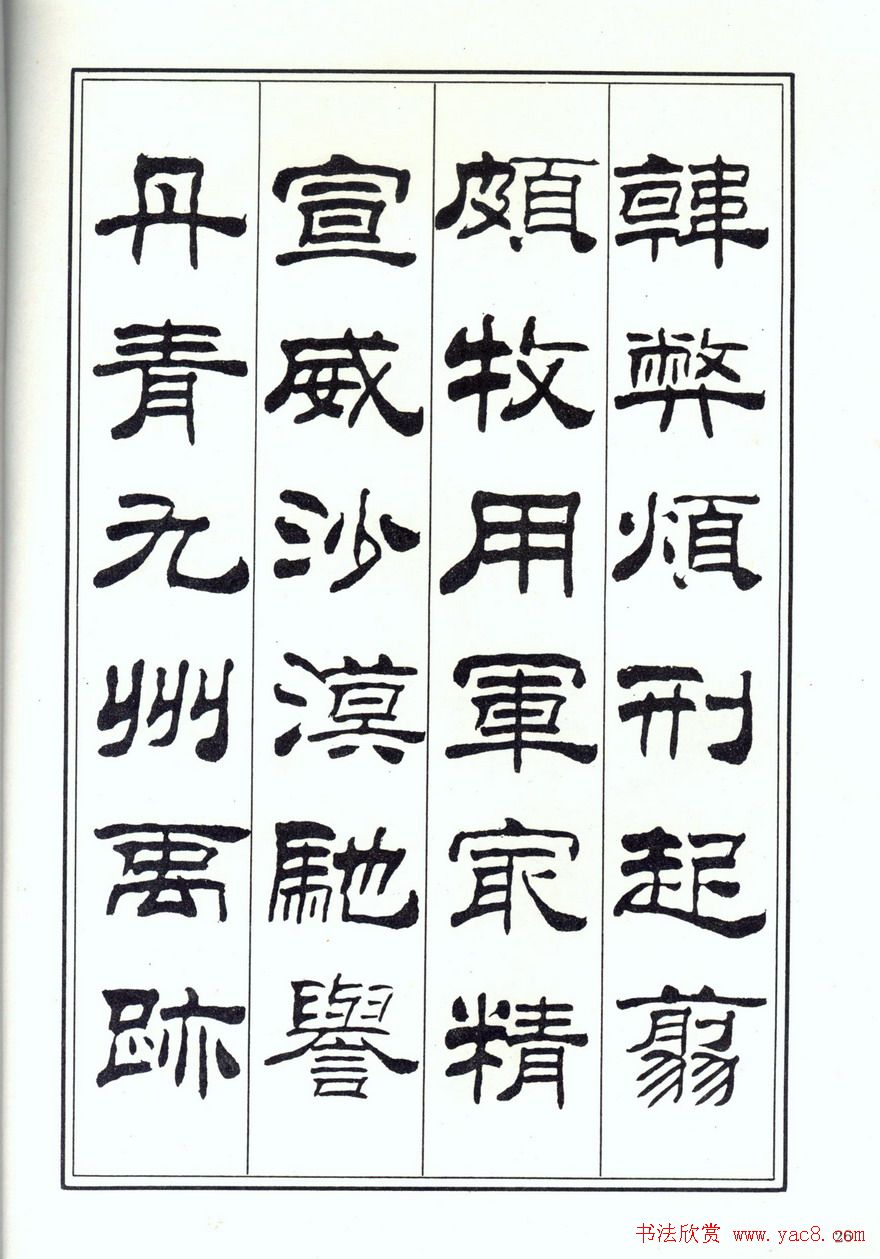 韓弊煩刑起翦
頗牧用軍宼精
宣威沙漠馳譽
丹青九州禹跡
26
书法欣赏 www.yac8.com